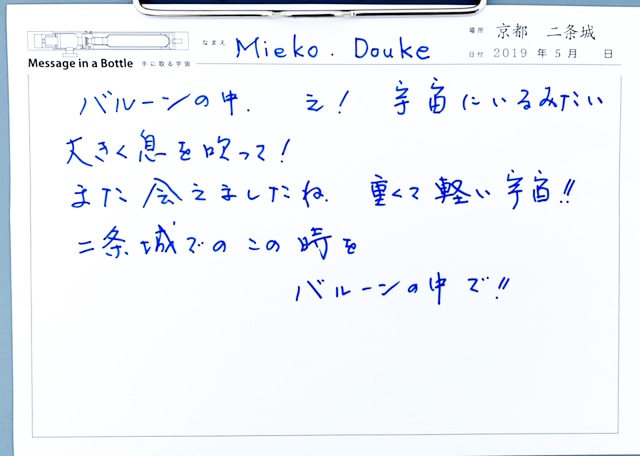 なまえ Mieko. Douke
場所 京都 二条城
日付 2019 年 5 月 日
Message in a Bottle 手に取る宇宙
バルーンの中. え! 宇宙にいるみたい
大きく息を吹って!
また会えましたね. 重くて軽い宇宙!!
二条城でのこの時を
バルーンの中で!!